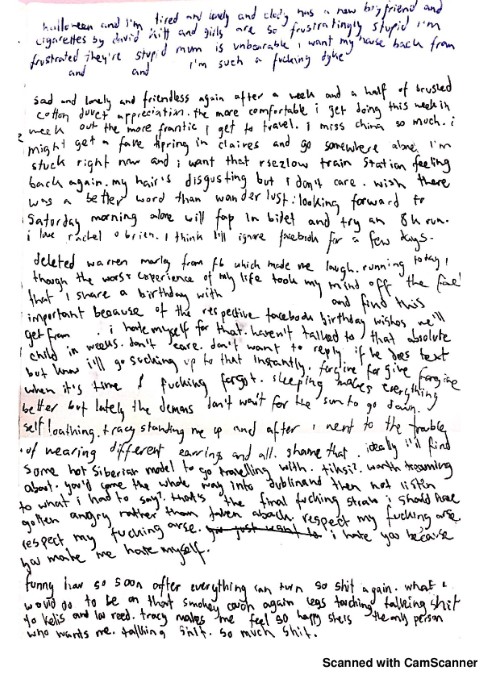 halloween and i'm tired and lonely and clody has a new boyfriend and
cigarettes by david kitt and girls are so frustratingly stupid i'm
frustrated they're stupid mum is unbearable i want my house back from
and and i'm such a fucking dyke
sad and lonely and friendless again after a week and a half of brushed
cotton duvet appreciation. the more comfortable i get doing this week in
week out the more frantic i get to travel. i miss china so much. i
might get a fake piercing in claires and go somewhere alone. i'm
stuck right now and i want that train station feeling
back again. my hair's disgusting but i don't care. wish there
was a better word than wanderlust. looking forward to
saturday morning alone will fap in bidet and try an 8k run.
i love rachel o brien. i think i'll ignore facebook for a few days.
deleted warren from fb which made me laugh. running today,
though the worst experience of my life took my mind off the fact
that i share a birthday with and find this
important because of the respective facebook birthday wishes we'll
get from . i hate myself for that. haven't talked to that absolute
child in weeks. don't care. don't want to reply. if he does text
but know i'll go sucking up to that instantly. forgive forgive forgive
when it's time I fucking forgot. sleeping makes everything
better but lately the demons don't wait for the sun to go down.
self loathing. tracy standing me up and after i went to the trouble
of wearing different earrings and all. shame that. ideally i'll find
some hot siberian model to go travelling with. tiksi?. worth dreaming
about. you'd come the whole way into dublin and then not listen
to what i had to say?. that's the final fucking straw i should have
gotten angry rather than taken aback. respect my fucking arse
respect my fucking arse. i hate you because
you make me hate myself.
funny how so soon after everything can turn so shit again. what i
would do to be on that smokey couch again legs touching talking shit
to kelis and lou reed. tracy makes me feel so happy she's the only person
who wants me. talking shit. so much shit.
Scanned with CamScanner